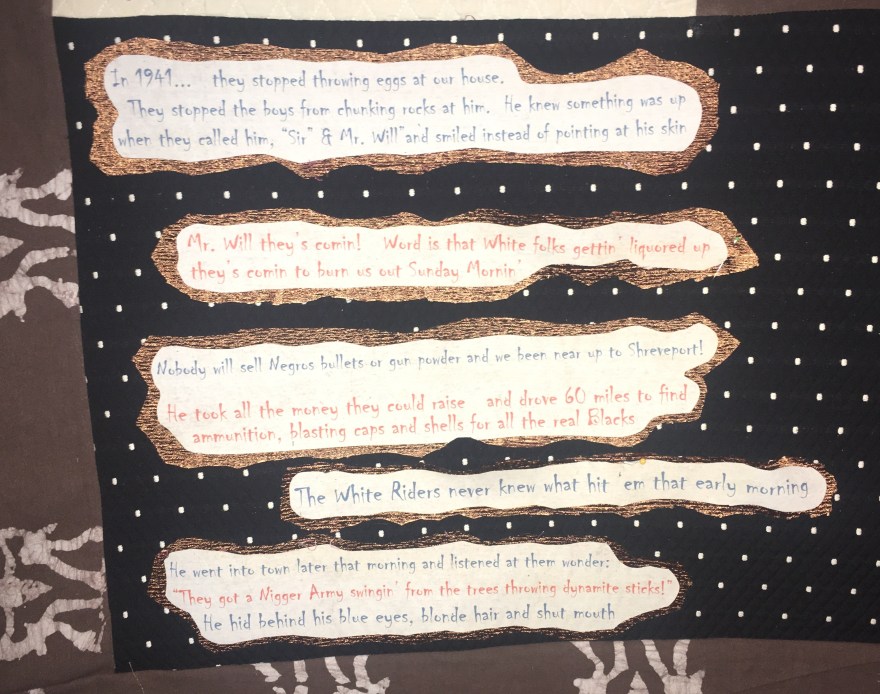 In 1941... they stopped throwing eggs at our house.
They stopped the boys from chunking rocks at him. He knew something was up
when they called him, "Sir" & Mr. Will"and smiled instead of pointing at his skin
Mr. Will they's comin! Word is that White folks gettin' liquored up
they's comin to burn us out Sunday Mornin'
Nobody will sell Negros bullets or gun powder and we been near up to Shreveport!
He took all the money they could raise and drove 60 miles to find
ammunition, blasting caps and shells for all the real Blacks
The White Riders never knew what hit 'em that early morning
He went into town later that morning and listened at them wonder:
"They got a Nigger Army swingin' from the trees throwing dynamite sticks!"
He hid behind his blue eyes, blonde hair and shut mouth